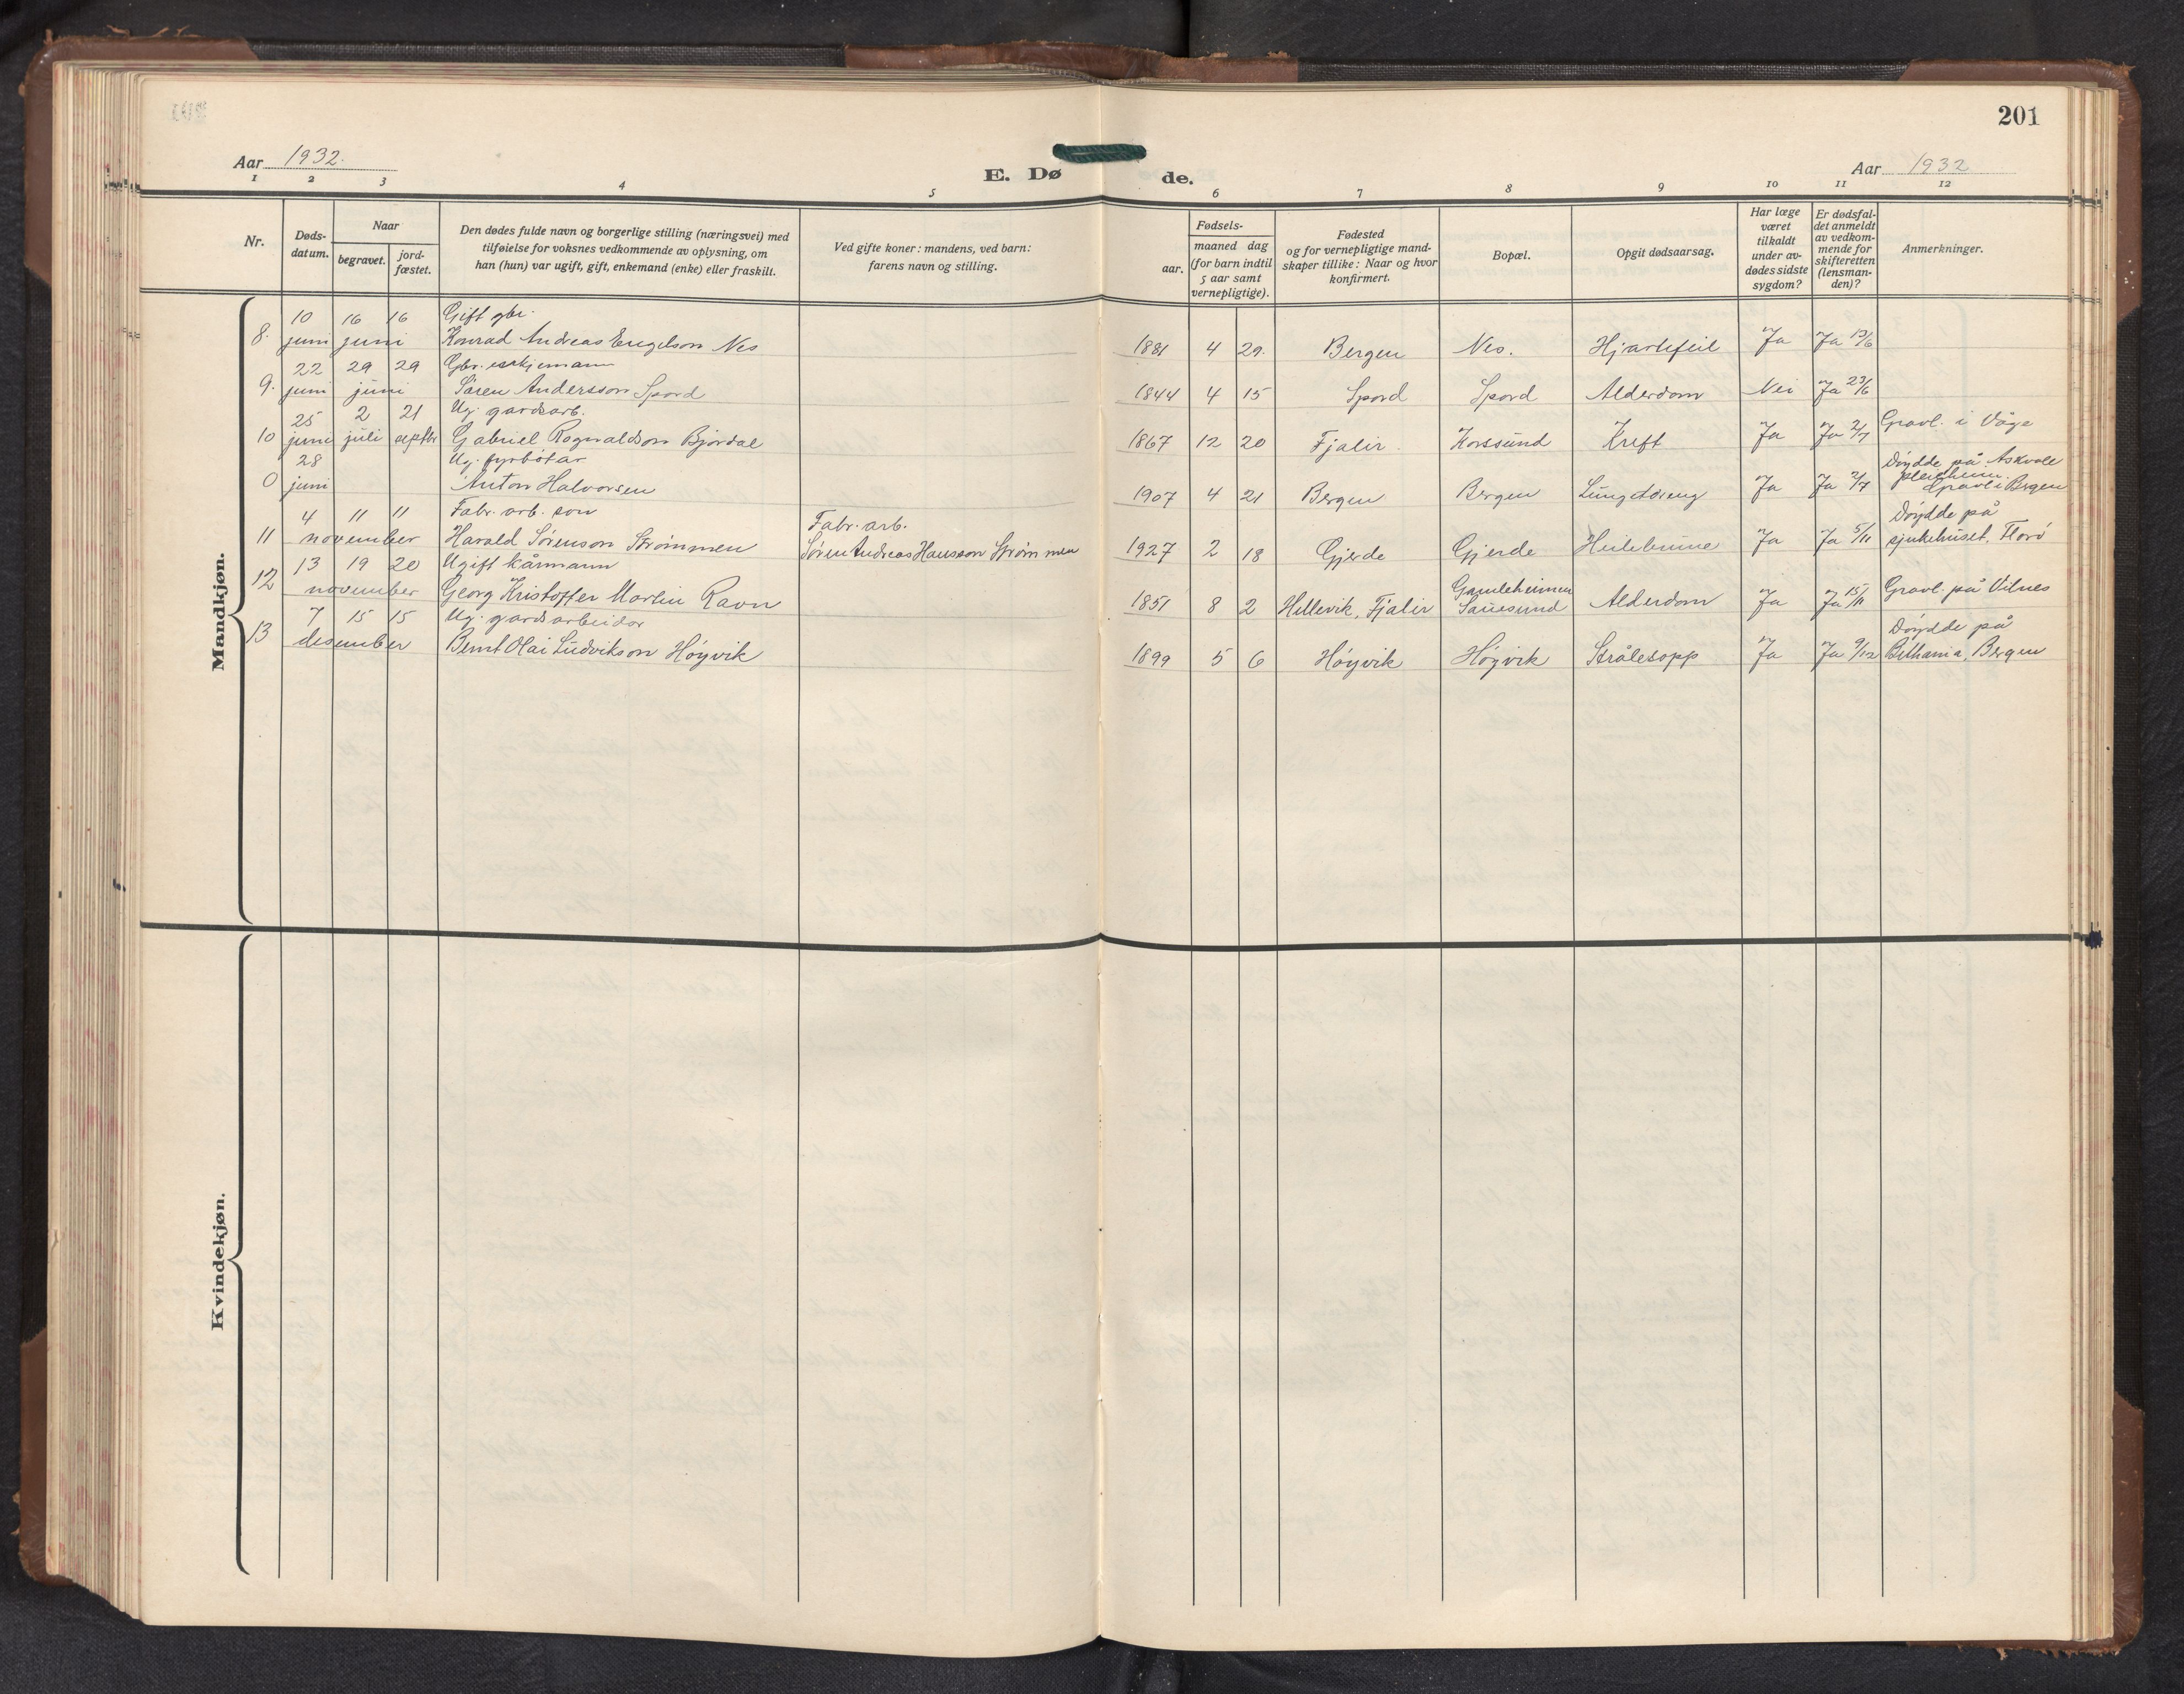 201
Aar 1932.
E. Døde.
Aar 1932
1 2 3 4 5 6 7 8 9 10 11 12
Nr.
Døds-
datum.
Naar
begravet.
jord-
fæstet.
Den dødes fulde navn og borgerlige stilling (næringsvei) med
tilføielse for voksnes vedkommende av oplysning, om
han (hun) var ugift, gift, enkemand (enke) eller fraskilt.
Ved gifte koner: mandens, ved barn:
farens navn og stilling.
Fødsels-
aar.
maaned dag
(for barn indtil
5 aar samt
vernepligtige).
Fødested
og for vernepligtige mand-
skaper tillike: Naar og hvor
konfirmert.
Bopæl.
Opgit dødsaarsag.
Har læge
været
tilkaldt
under av-
dødes sidste
sygdom?
Er dødsfal-
det anmeldt
av vedkom-
mende for
skifteretten
(lensman-
den)?
Anmerkninger.
Mandkjøn.
10 16 16 Gift gbr.
8. juni juni Konrad Andreas Engelson Nes 1881 4 29. Bergen Nes. Hjartefeil Ja Ja 13/6
22 29 29 Gbr. enkjemann
9. juni juni Søren Andersson Spord 1844 4 15 Spord Spord Alderdom Nei Ja 23/6
25 2 21 Ug. gardsarb.
10 juni juli septbr Gabriel Rognaldson Bjordal 1867 12 20 Fjalir Korssund Kreft Ja Ja 2/7 Gravl. i Våge
28 Ug. fyrbötar
0 juni Anton Halvorsen 1907 4 21 Bergen Bergen Ja Ja 2/7
Döydde på Askvoll
pleieheim
Gravl i Bergen
4 11 11 Fabr. arb. son
11 november Harald Sörenson Strömmen
Fabr. arb.
Sören Andreas Hansson Strömmen
1927 2 18 Gjerde Gjerde Heilebrune Ja Ja 5/11
Döydde på
sjukehuset, Florö
13 19 20 Ugift kårmann
12 november Georg Kristoffer Martin Ravn 1851 8 2 Hellevik, Fjalir
Gamleheimen
Sauesund
Alderdom Ja Ja 15/11 Gravl. på Vilnes
7 15 15 Ug. gardsarbeidar
13 desember Bernt Olai Ludvikson Höyvik 1899 5 6 Höyvik Höyvik Strålesopp Ja Ja 9/12
Döydde på
Bethania, Bergen
Kvindekjøn.